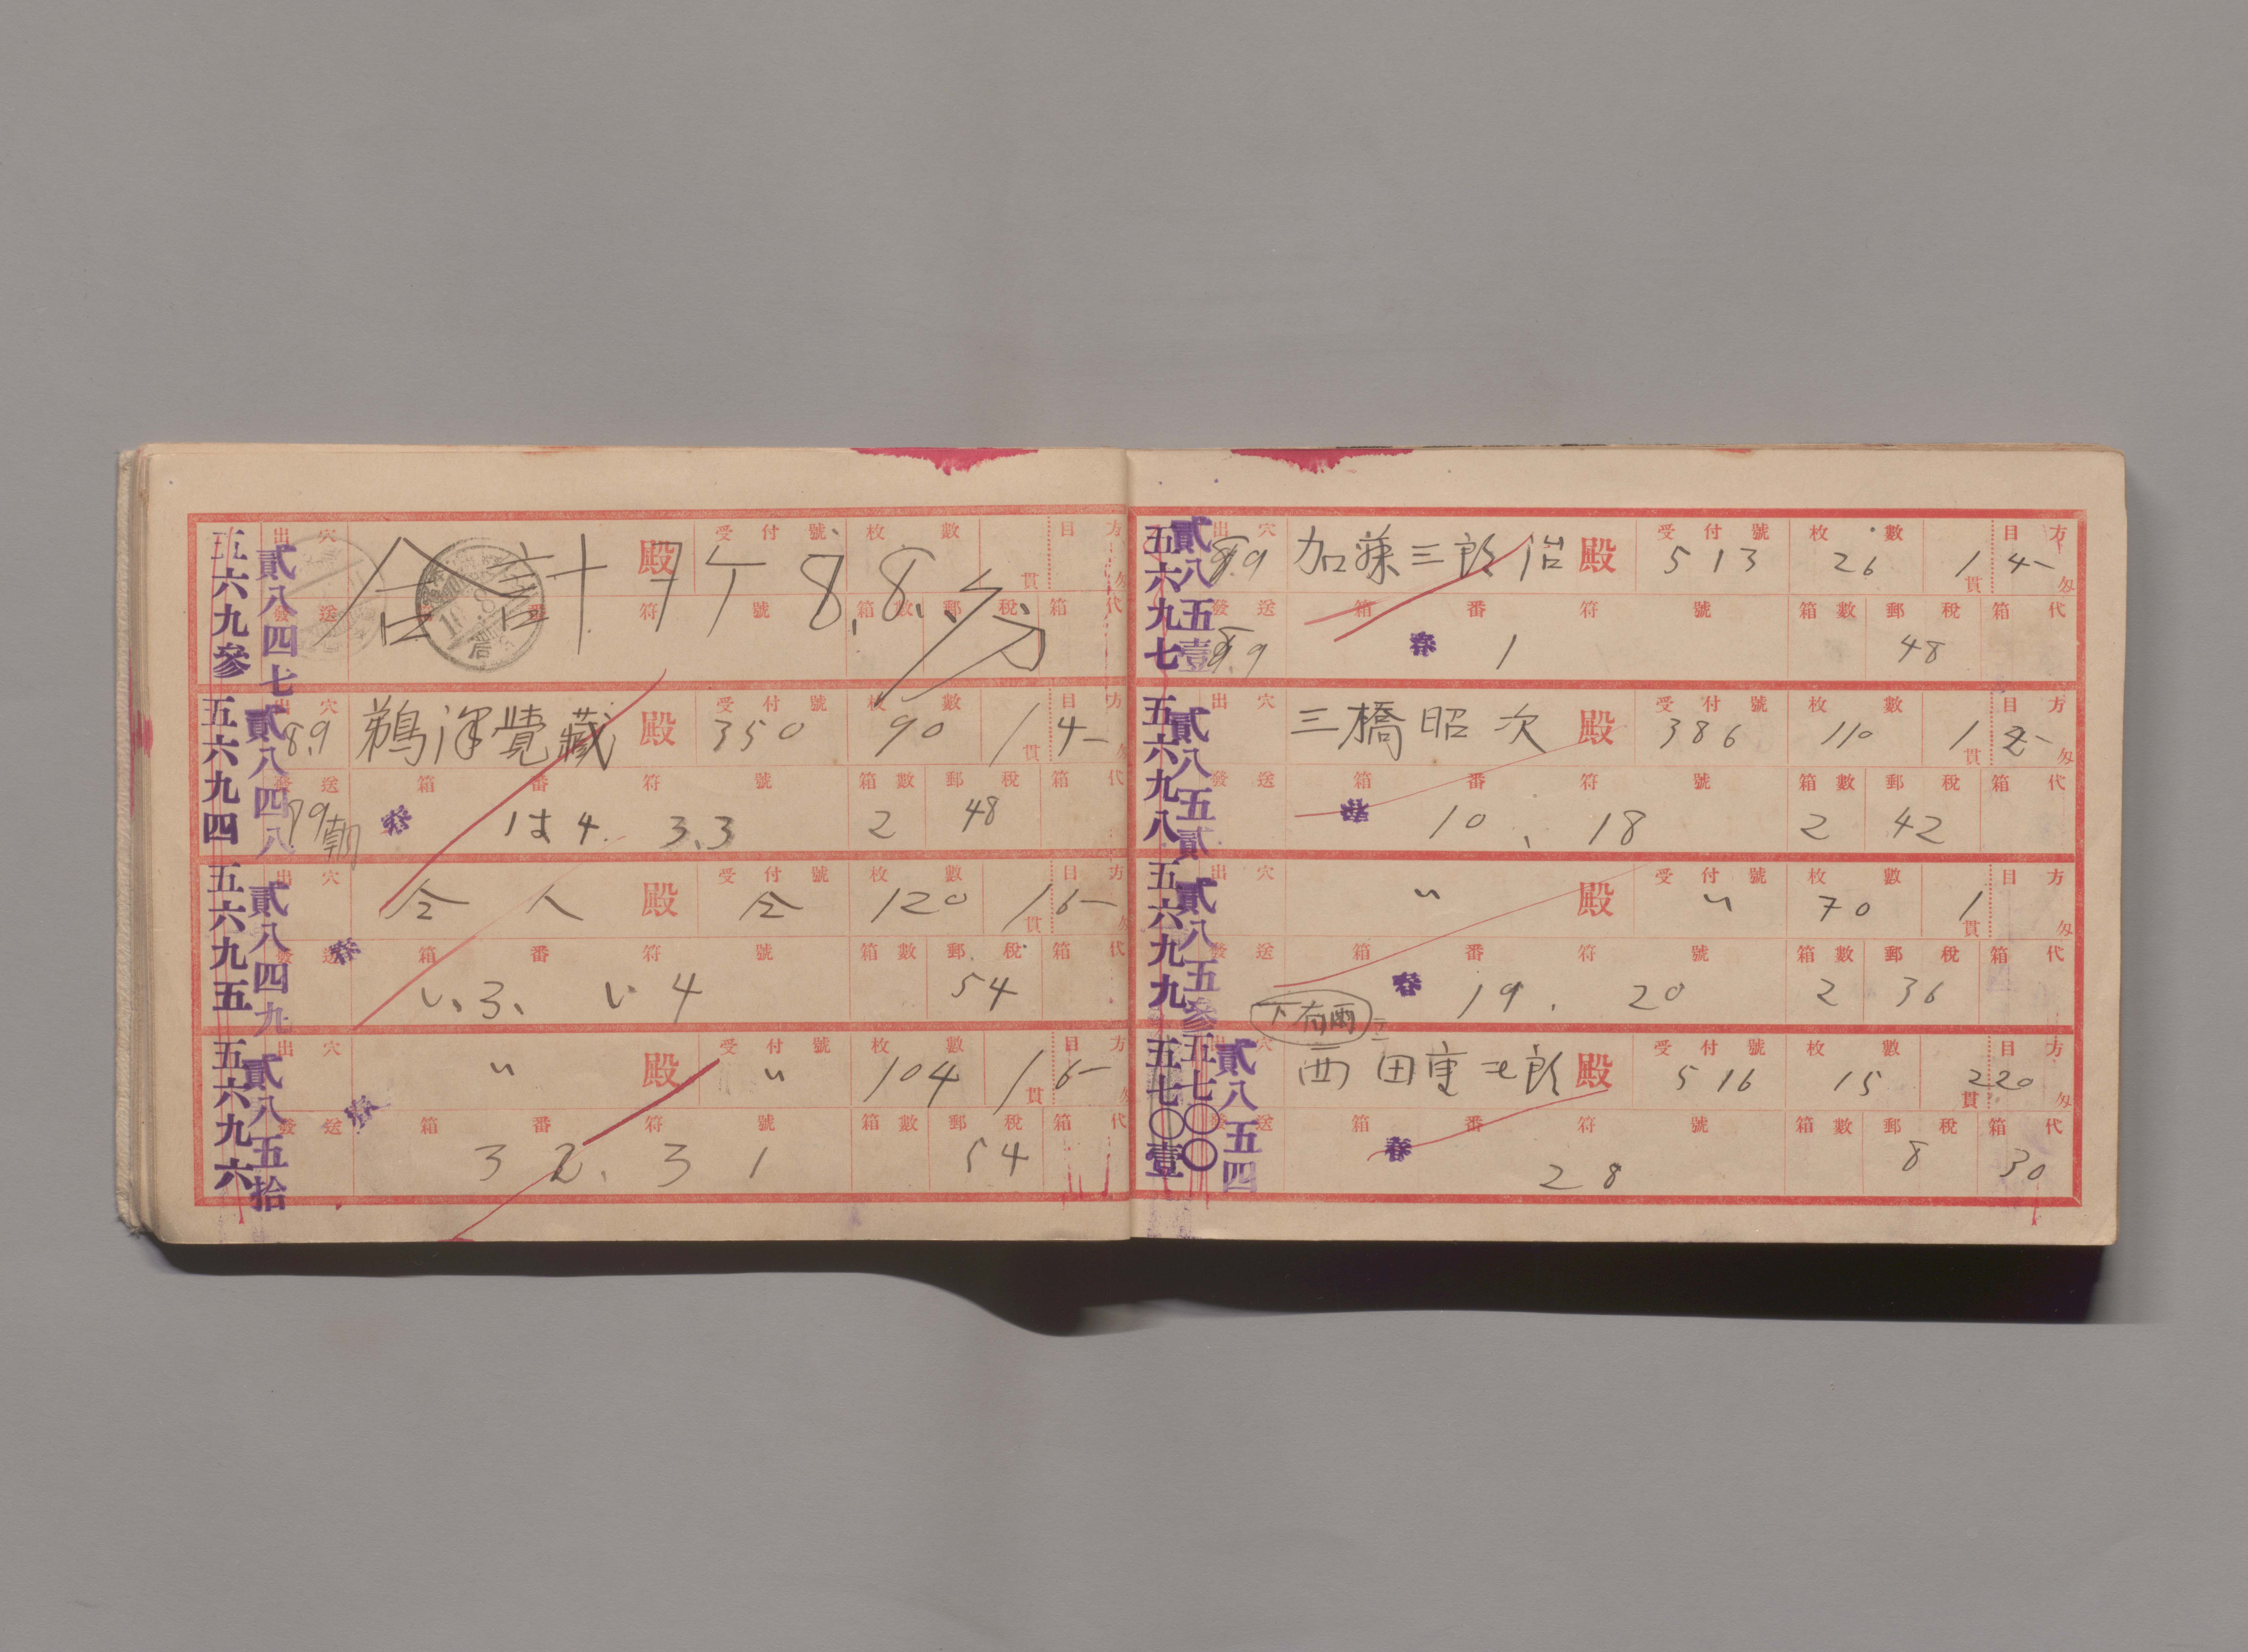 五六九参 貳八四七
出穴 合計7ケ 8.8.分 殿 受付號 枚數 貫 目方 匁
發送 箱番符號 箱數 郵税 箱代
五六九四 貳八四八
出穴 8.9 鵜澤覺藏 殿 受付號 350 枚數 90 1貫 目方 4- 匁
發送 8.9朝 箱番符號 春 は4. 3.3 箱數 2 郵税 48 箱代
五六九五 貳八四九
出穴 仝人 殿 受付號 仝 枚數 120 1貫 目方 6- 匁
發送 箱番符號 春 い、3、 い4 箱數 郵税 54 箱代
五六九六 貳八五拾
出穴 〃 殿 受付號 〃 枚數 104 1貫 目方 6- 匁
發送 箱番符號 32、31 箱數 郵税 54 箱代
五六九七 貳八五壹
出穴 8.9 加藤三郎治 殿 受付號 513 枚數 26 1貫 目方 4- 匁
發送 8.9 箱番符號 春 1 箱數 郵税 48 箱代
五六九八 貳八五貳
出穴 三橋昭次 殿 受付號 386 枚數 110 1貫 目方 2- 匁
發送 箱番符號 春 10、18 箱數 2 郵税 42 箱代
五六九九 貳八五参
出穴 〃 殿 受付號 〃 枚數 70 1貫 目方 匁
發送 箱番符號 春 19. 20 箱數 2 郵税 36 箱代
五七〇壹 五七〇〇 貳八五四
出穴 西田 殿 受付號 516 枚數 15 貫 目方 220 匁
發送 箱番符號 春 28 箱數 郵税 8 箱代 30